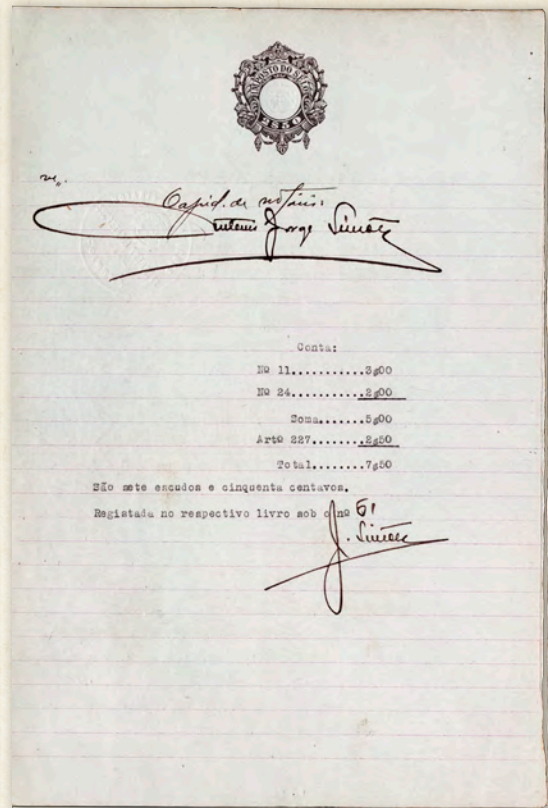 IMPOSTO DO SELO
ve.
O ajud. de notário:
António Jorge Simões
Conta:
Nº 11...........3$00
Nº 24...........2$00
Soma.......5$00
Artº 227........2$50
Total.......7$50
São sete escudos e cinquenta centavos.
Registada no respectivo livro sob o nº 61
J. Simões